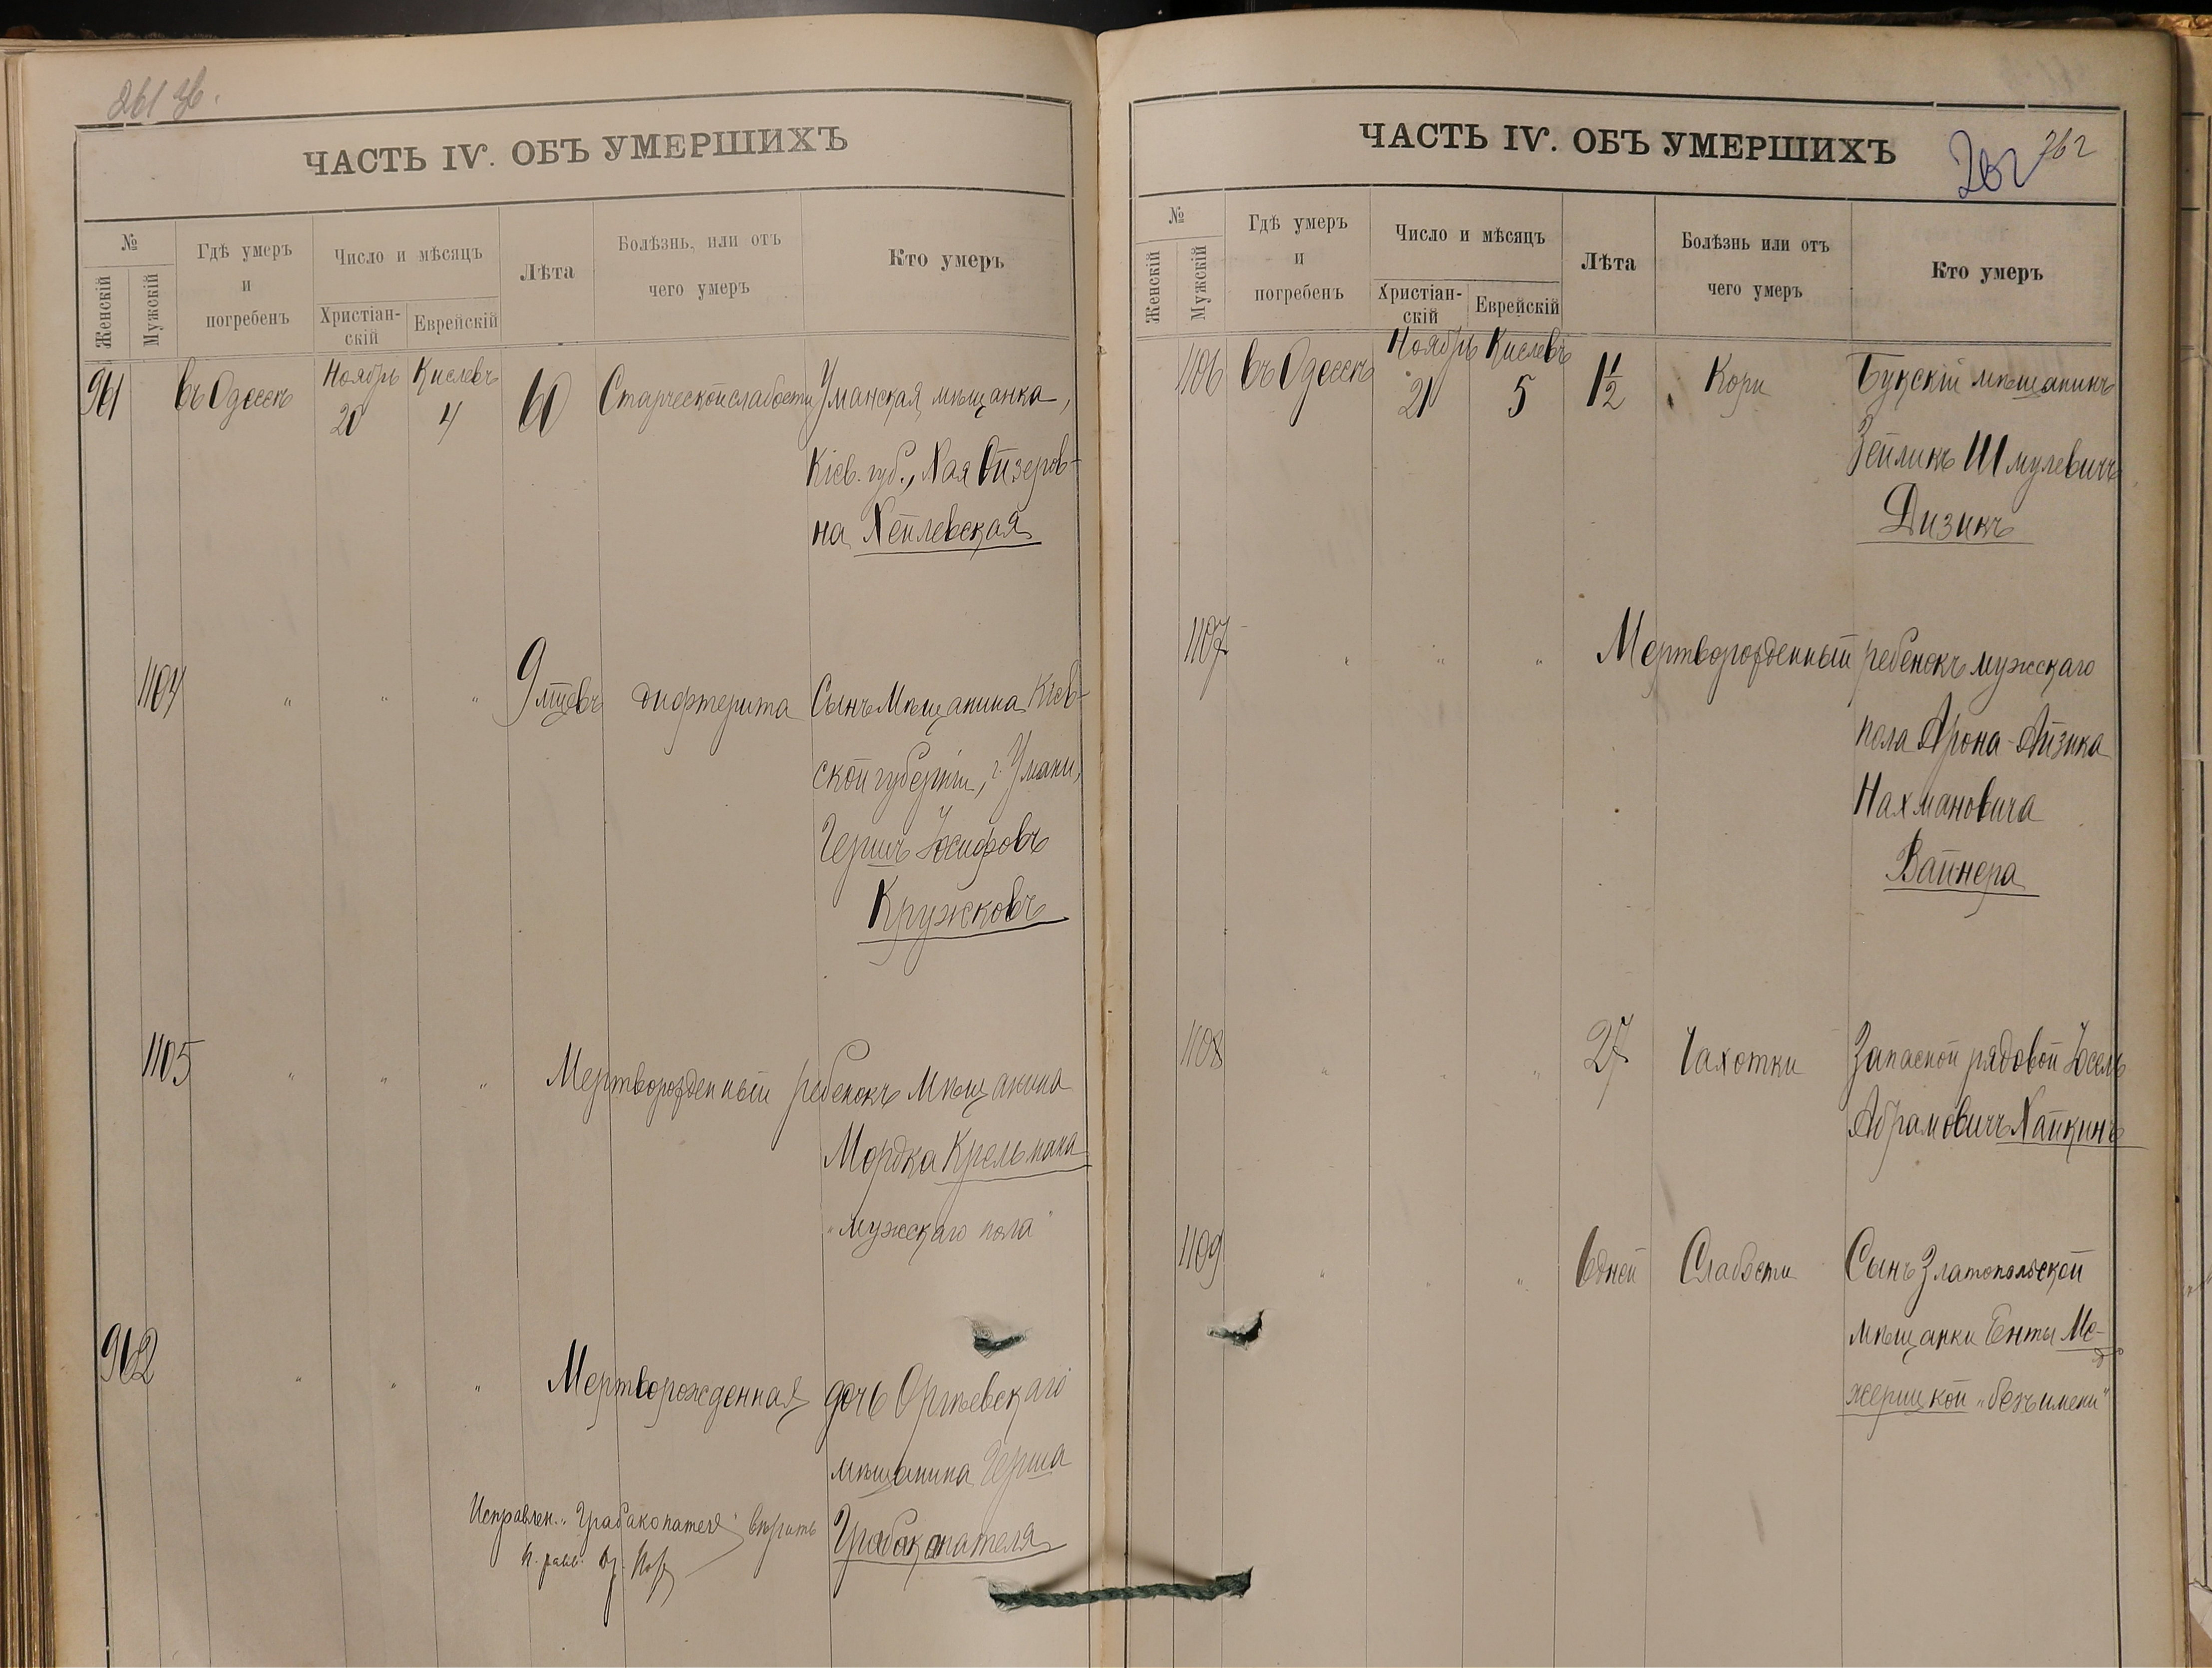 261 об.
ЧАСТЬ IV. ОБЪ УМЕРШИХЪ
№
Женскій
Мужскій
Гдѣ умеръ
и
погребенъ
Число и мѣсяцъ
Христіан-
скій
Еврейскій
Лѣта
Болѣзнь, или отъ
чего умеръ
Кто умеръ
961 въ Одессѣ Ноябрь 20 Кислевъ 4 60 Старческой слабости Уманская мѣщанка,
Кіев. губ., Хая Ойзеров-
на Хейлевская
1104 " " " 9 мѣцевъ дифтерита Сынъ Мѣщанина Кіев-
ской губерніи, г. Умани,
Гершъ Іосифовъ
Кружковъ
1105 " " " Мертворожденный ребенокъ Мѣщанина
Мордка Крельмана
"мужскаго пола"
962 " " " Мертворожденная дочь Оргѣевскаго
мѣщанина Герша
Грабокопателя
Исправлен. "Грабакопателя" вѣрить
ЧАСТЬ IV. ОБЪ УМЕРШИХЪ
262 262
№
Женскій
Мужскій
Гдѣ умеръ
и
погребенъ
Число и мѣсяцъ
Христіан-
скій
Еврейскій
Лѣта
Болѣзнь или отъ
чего умеръ
Кто умеръ
1106 въ Одессѣ Ноябрь 21 Кислевъ 5 1½ Кори Букскій мѣщанинъ
Зейликъ Шмулевичъ
Дизикъ
1107 " " " Мертворожденный ребенокъ мужскаго
пола Арона-Айзика
Нахмановича
Вайнера
1108 " " " 27 Чахотки Запасной рядовой Іосель
Абрамовичъ Хайкинъ
1109 " " " 6 дней Слабости Сынъ Златопольской
мѣщанки Енты Ме-
жерицкой "безъ имени"